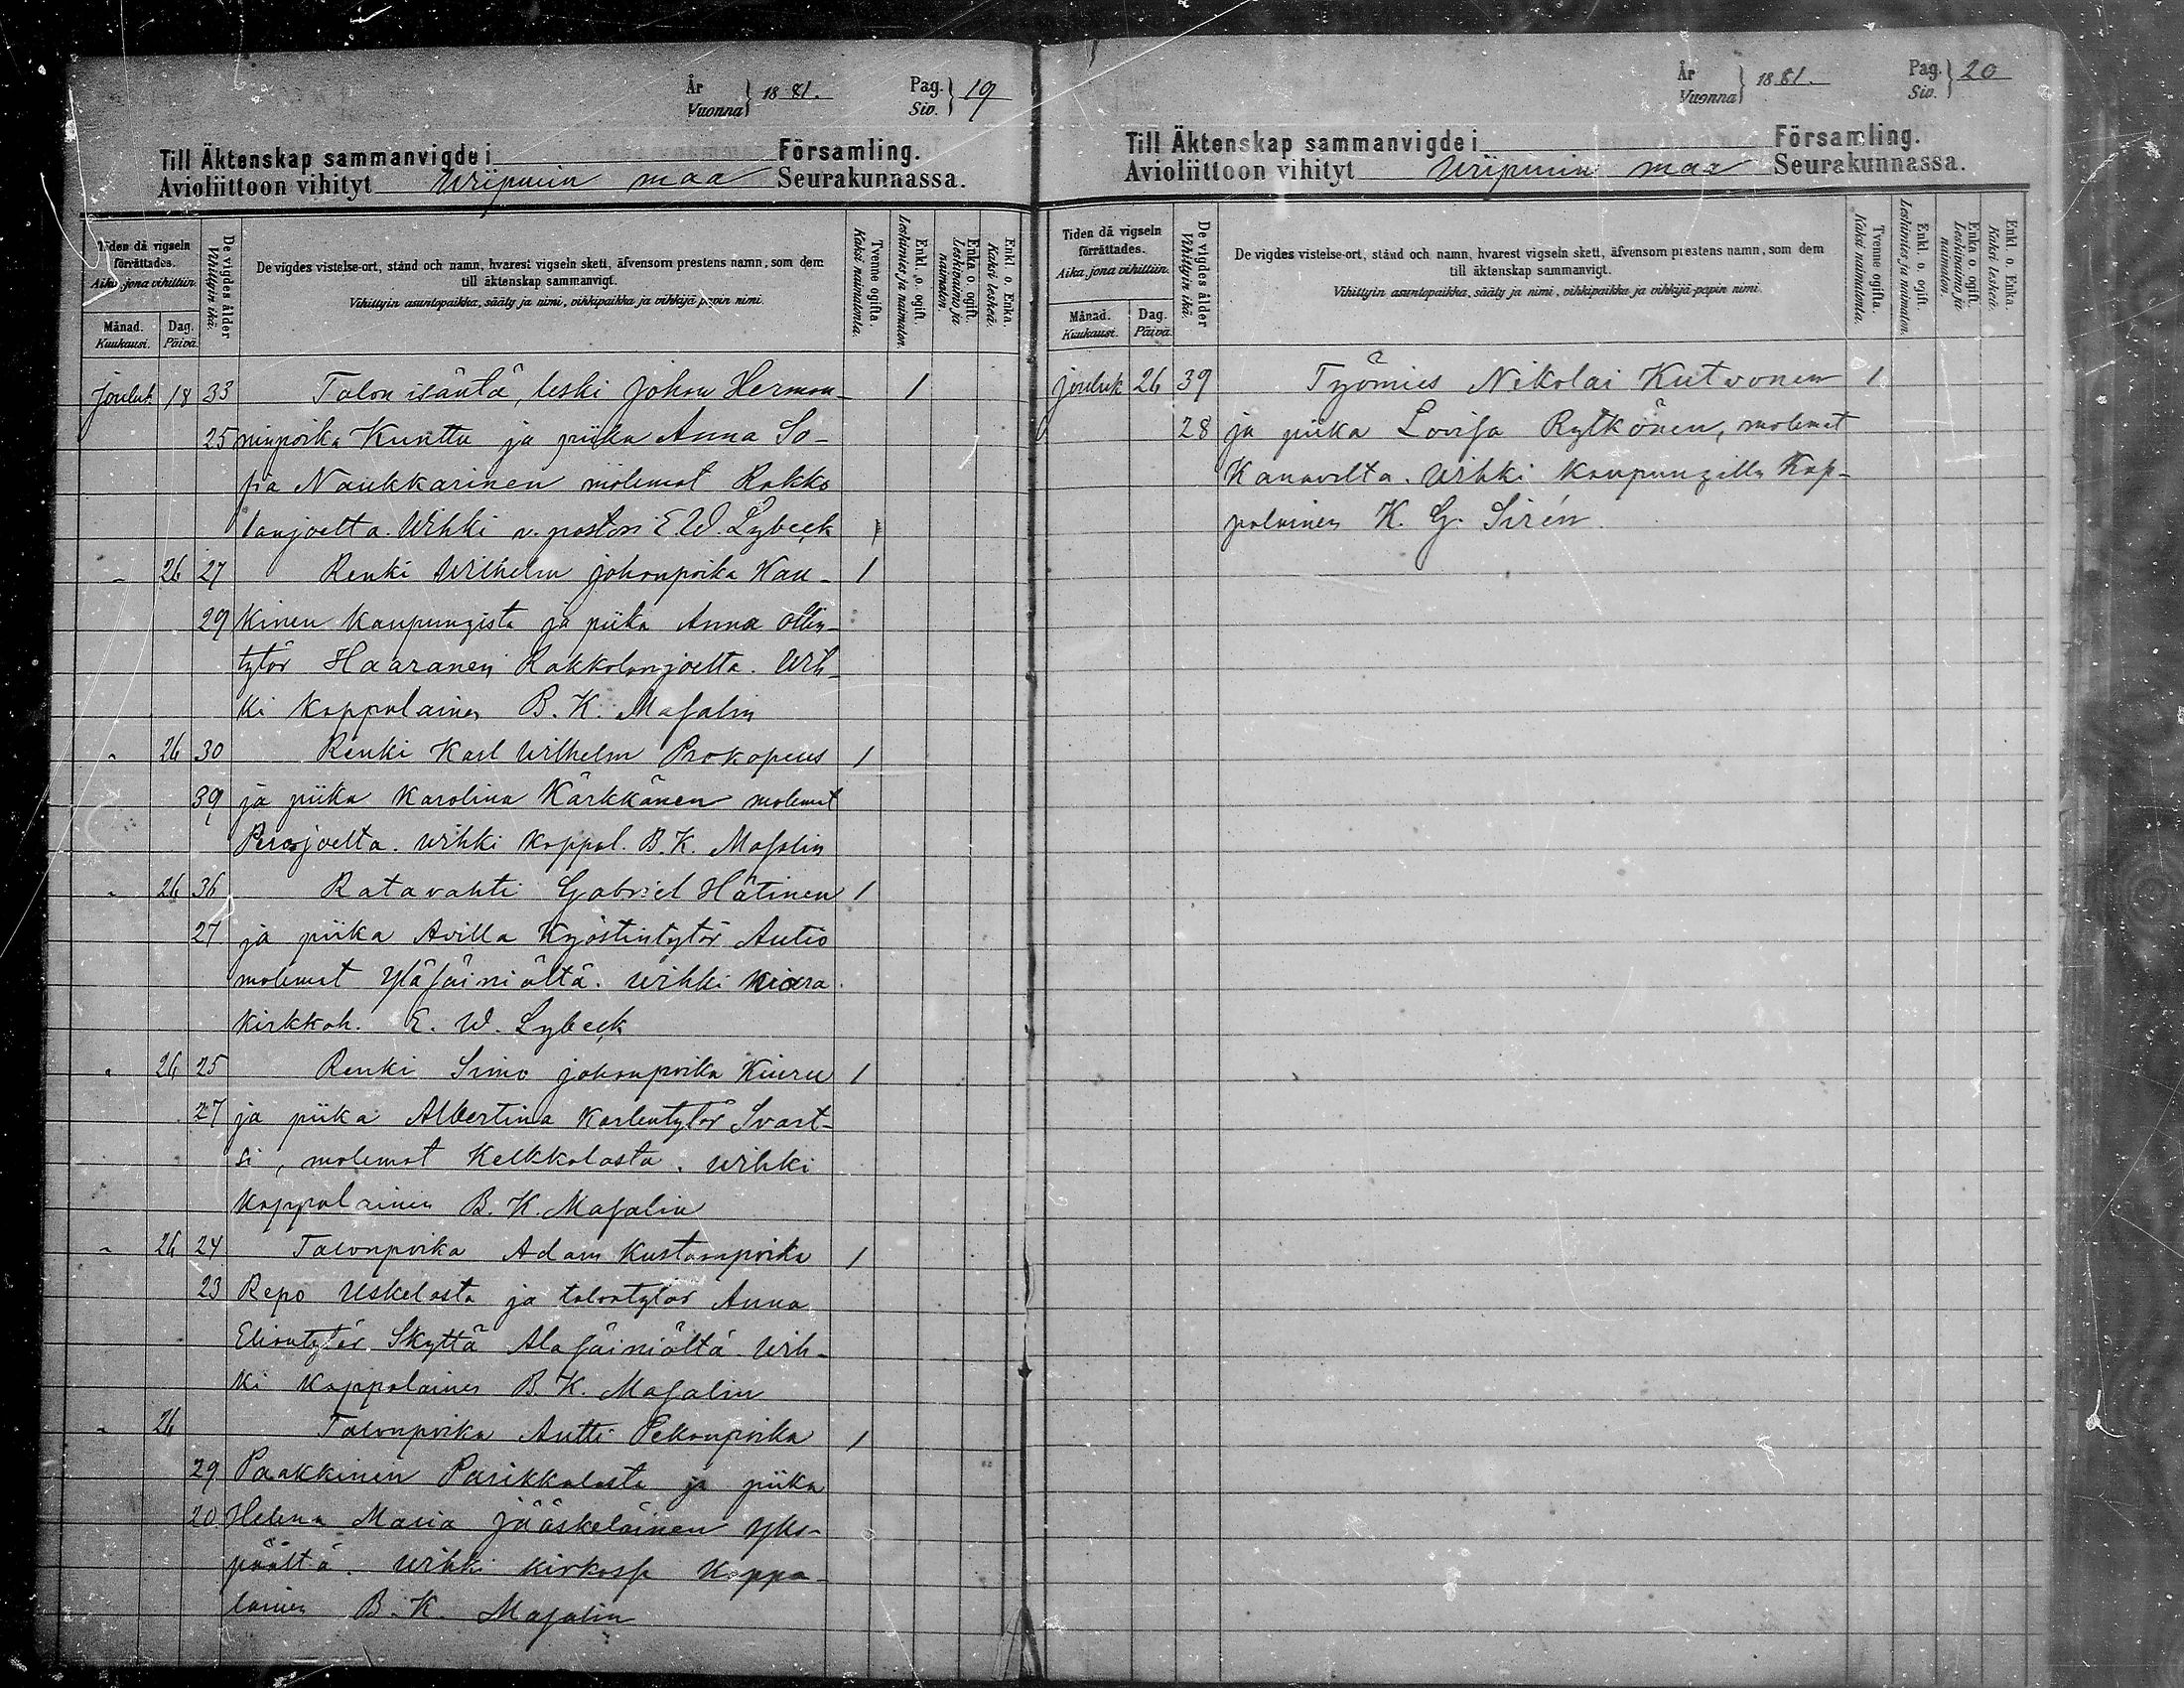 År Vuonna } 1881. Pag. Siv. } 19
Till Äktenskap sammanvigde i Församling.
Avioliittoon vihityt Wiipurin maa Seurakunnassa.
Tiden då vigseln förrättades.
Aika, jona vihittiin.
Månad. Kuukausi.
Dag. Päivä.
De vigdes ålder
Vihittyin ikä.
De vigdes vistelse-ort, stånd och namn, hvarest vigseln skett, äfvensom prestens namn, som dem
till äktenskap sammanvigt.
Vihittyin asuntopaikka, sääty ja nimi, vihkipaikka ja vihkijä papin nimi.
Tvenne ogifta.
Kaksi naimatonta.
Enkl. o. ogift.
Leskimies ja naimaton.
Enka o. ogift.
Leskivaimo ja naimaton.
Enkl. o. Enka.
Kaksi leskeä.
Jouluk 18 33 Talon isäntä, leski Johan Herman- 1
25 ninpoika Kunttu ja piika Anna So-
fia Naukkarinen molemat Rakko
lanjoelta. Wihki v. pastori E. W. Lybeck
" 26 27 Renki Wilhelm Johanpoika Kau- 1
29 kinen Kaupungista ja piika Anna Ollin-
tytär Haaranen Rakkolanjoelta. Wih-
ki Kappalainen B. K. Masalin
" 26 30 Renki Karl Wilhelm Prokopeus 1
39 ja piika Karolina Kärkkänen molemat
Perojoelta. Wihki Kappal. B. K. Masalin
" 26 36 Ratavahti Gabriel Hätinen 1
27 ja piika Avilla Kyöstintytär Autio
molemat Yläsäiniältä. Wihki
Kirkkoh. E. W. Lybeck
" 26 25 Renki Simo Johanpoika Kiuru 1
27 ja piika Albertina Karlentytär Svart-
si, molemat Kelkkalasta. Wihki
Kappalainen B. K. Masalin
" 26 24 Talonpoika Adam Kustaanpoika 1
23 Repo Uskelasta ja talontytär Anna
Eliantytär Skyttä Alasäiniältä. Wih-
ki Kappalainen B. K. Masalin
" 26 Talonpoika Antti Pekanpoika 1
29 Paakkinen Parikkalasta ja piika
20 Helena Maria Jääskeläinen Yks-
päältä. Wihki Kirkossa Kappa-
lainen B. K. Masalin
År Vuonna } 1881. Pag. Siv. } 20
Till Äktenskap sammanvigde i Församling.
Avioliittoon vihityt Wiipurin maa Seurakunnassa.
Tiden då vigseln förrättades.
Aika, jona vihittiin.
Månad. Kuukausi.
Dag. Päivä.
De vigdes ålder
Vihittyin ikä.
De vigdes vistelse-ort, stånd och namn, hvarest vigseln skett, äfvensom prestens namn, som dem
till äktenskap sammanvigt.
Vihittyin asuntopaikka, sääty ja nimi, vihkipaikka ja vihkijä-papin nimi.
Tvenne ogifta.
Kaksi naimatonta.
Enkl. o. ogift.
Leskimies ja naimaton.
Enka o. ogift.
Leskivaimo ja naimaton.
Enkl. o. Enka.
Kaksi leskeä.
Jouluk 26 39 Työmies Nikolai Kutvonen 1
28 ja piika Lovisa Rytkönen, molemat
Kanavelta. Wihki Kaupungilla Kap-
palainen K. G. Sirén.